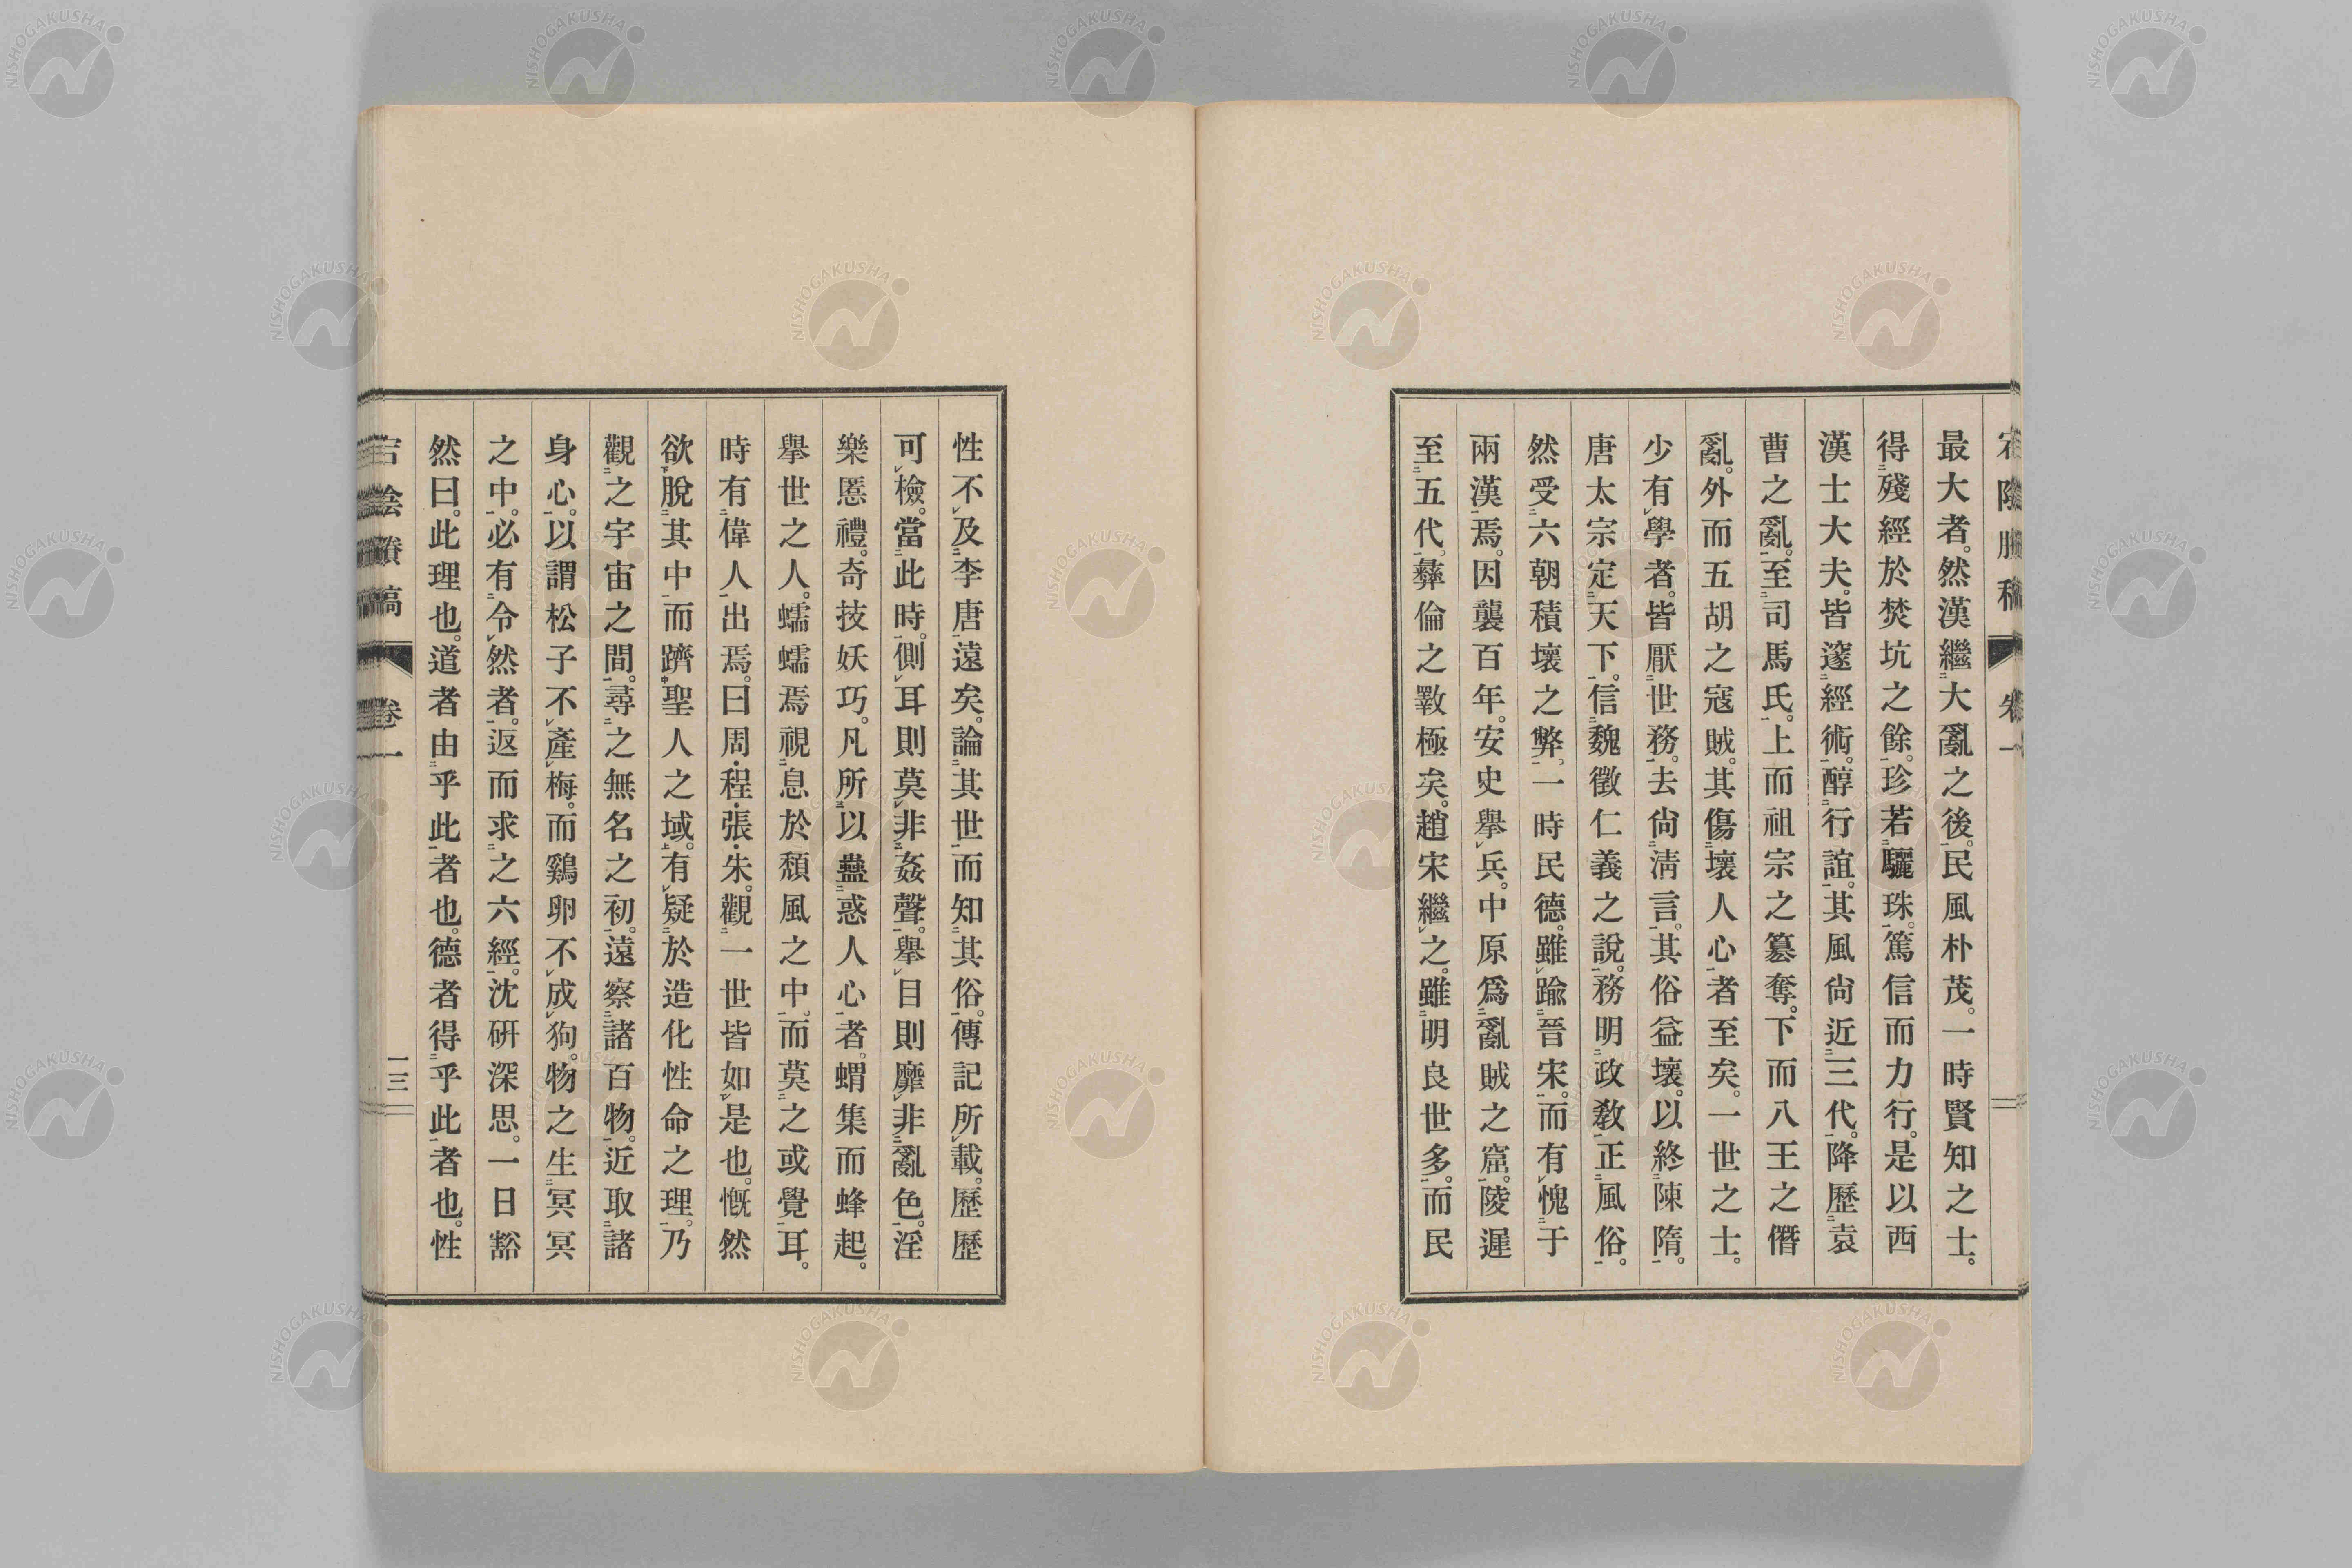 最大者。然漢繼大亂之後。民風朴茂。一時賢知之士。
得殘經於焚坑之餘。珍若驪珠。篤信而力行。是以西
漢士大夫。皆邃經術。醇行誼。其風尙近三代。降歷袁
曹之亂。至司馬氏。上而祖宗之簒奪。下而八王之僭
亂。外而五胡之寇賊。其傷壞人心者至矣。一世之士。
少有學者。皆厭世務。去尙淸言。其俗益壞。以終陳隋。
唐太宗定天下。信魏徵仁義之說。務明政敎。正風俗。
然受六朝積壞之弊。一時民德。雖踰晉宋。而有愧于
兩漢焉。因襲百年。安史擧兵。中原爲亂賊之窟。陵遲
至五代。彝倫之斁極矣。趙宋繼之。雖明良世多。而民
卷一
性不及李唐遠矣。論其世而知其俗。傳記所載。歷歷
可檢。當此時。側耳則莫非姦聲。擧目則靡非亂色。淫
樂慝禮。奇技妖巧。凡所以蠱惑人心者。蝟集而蜂起。
擧世之人。蠕蠕焉視息於頹風之中。而莫之或覺耳。
時有偉人出焉。曰周・程・張・朱。觀一世皆如是也。慨然
欲脫其中而躋聖人之域。有疑於造化性命之理。乃
觀之宇宙之間。尋之無名之初。遠察諸百物。近取諸
身心。以謂松子不產梅。而鷄卵不成狗。物之生冥冥
之中。必有令然者。返而求之六經。沈研深思。一日豁
然曰。此理也。道者由乎此者也。德者得乎此者也。性
卷一
一三
NISHOGAKUSHA